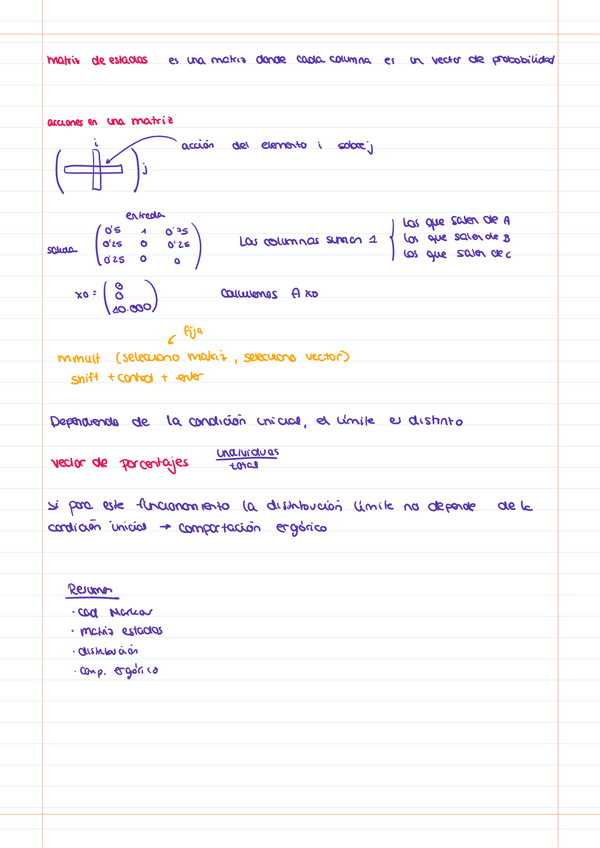 matriz de estados es una matriz donde cada columna es un vector de probabilidad
acciones en una matriz
i
acción del elemento i sobre j
j
entrada
salida
0'5 1 0'75
0'25 0 0'25
0'25 0 0
Las columnas suman 1
Los que salen de A
Los que salen de B
Los que salen de C
x0 = ( 0
0
10.000 )
Calculamos A x0
fija
mmult (selecciono matriz, selecciono vector)
shift + control + enter
Dependiendo de la condición inicial, el límite es distinto
vector de porcentajes individuos
total
si para este funcionamiento la distribución límite no depende de la
condición inicial → comportación ergórico
Resumen
· cad Markov
· matriz estados
· distribución
· comp. ergórico